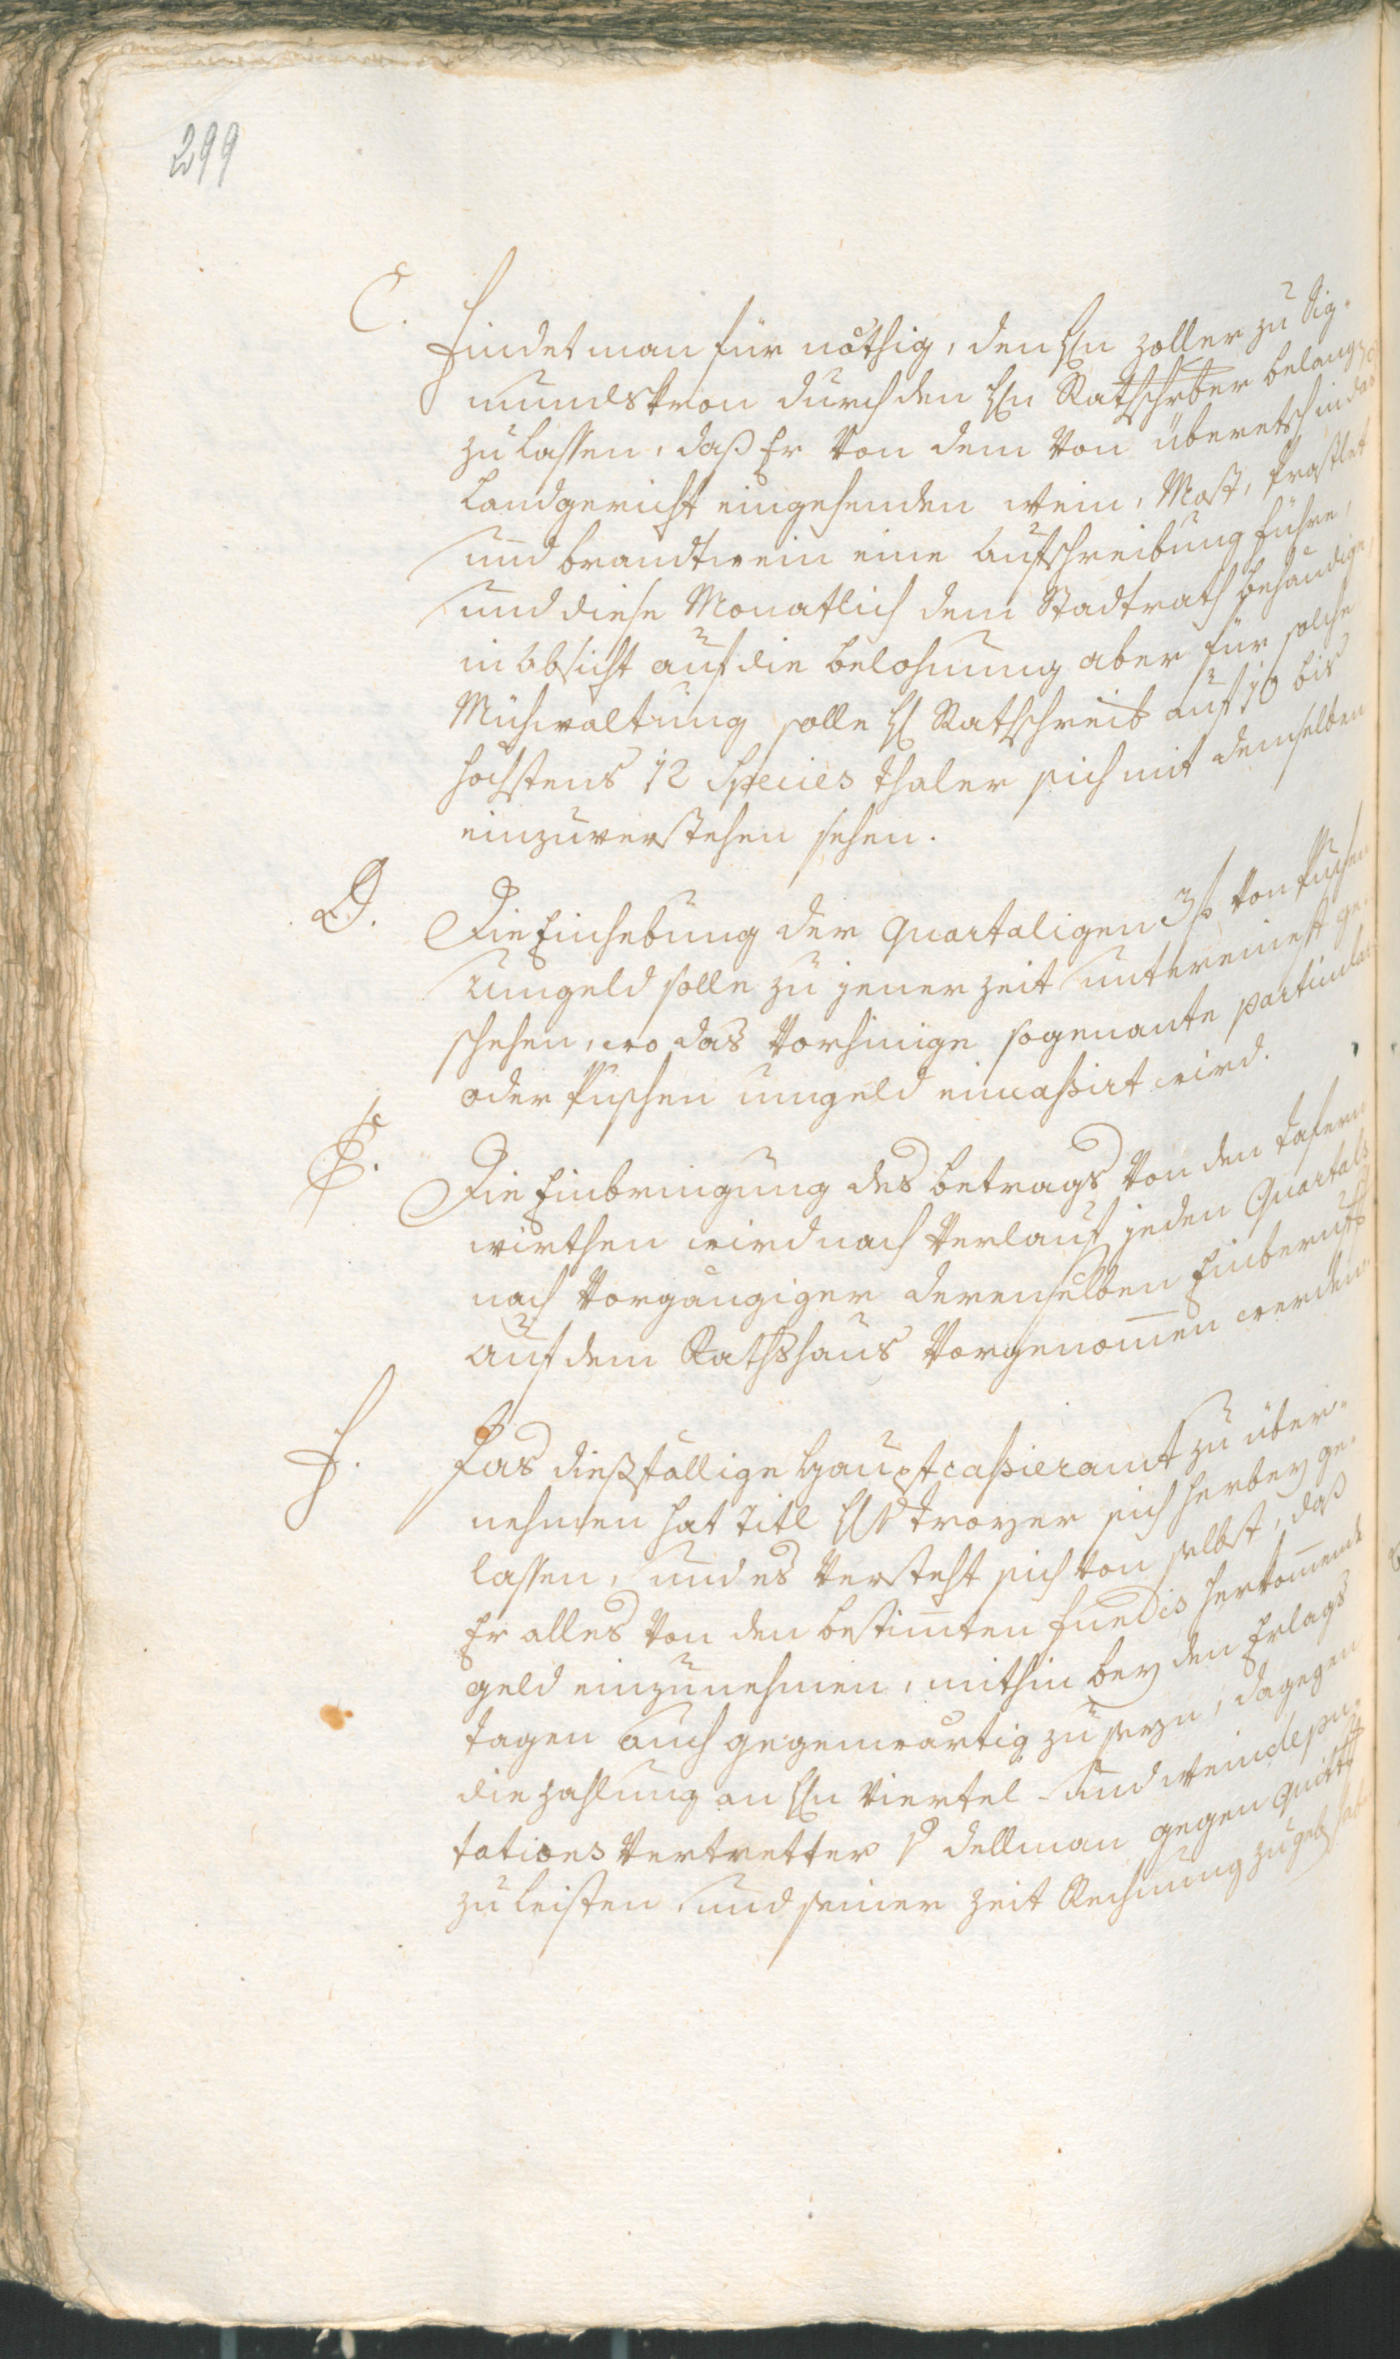 299
C. Findet man für nöthig, den H. Zoller zu Sig-
mundskron durch den H. Rathschrber belangen
zu lassen, daß Er von dem von überetsch in das
Landgericht eingehenden Wein, Most, Praßlet
und brandtwein eine Aufschreibung führe,
und diese Monatlich dem Stadtrath behändige,
in absicht auf die belohnung aber für solche
Mühwaltung solle H. Rathschreib auf 10 bis
hochstens 12 Species thaler sich mit demselben
einzuverstehen sehen.
D. Die Einhebung der Quartaligen 3 f. von Puschen
Umgeld solle zu jener Zeit untereinest ge-
schehen, wo das vorhinige sogenante particular
oder Puschen umgeld eincaßirt wird.
E. Die Einbringung des betrags von den tafern
wirthen wird nach Verlauf jeden Quartals
nach vorgängiger derenselben Einberuff
auf dem Rathshaus vorgenomen werden.
F. Das dießfällige Hauptcaßieramt zu über-
nehmen hat Titl H. v. Troyer sich herbey ge-
lassen, und es versteht sich von selbst, daß
Er alles von den bestimten Fundis herkomende
geld einzunehmen, mithin bey den Erlags
tagen auch gegenwärtig zu seyn, dagegen
die zahlung an H. Viertel- und Weindepu-
tations Vertretter v. Dellman gegen Quitt
zu leisten, und seiner Zeit Rechnung zu geb habe